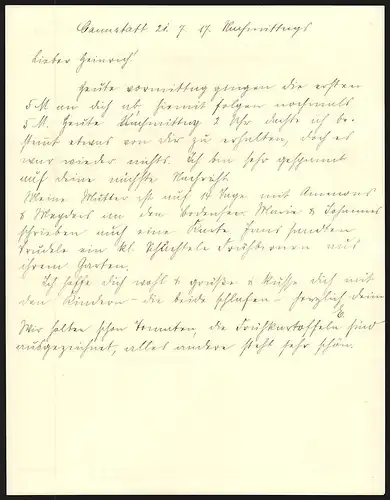 Cannstatt 21. 7. 17. Nachmittags
Lieber Heinrich
Heute vormittag gingen die ersten
5 M an dich ab, hiemit folgen nochmals
5 M. Heute Nachmittag 2 Uhr dachte ich be-
stimt etwas von dir zu erhalten, doch es
war wieder nichts. Ich bin sehr gespannt
auf deine nächste Nachricht.
Meine Mutter ist auf 14 Tage mit
& an den Bodensee. Marie & Johannes
schrieben auch eine Karte sandten
Trudele ein kl. Schächtele aus
ihrem Garten.
Ich hoffe dich wohl & grüße & küsse dich mit
den Kindern - die beide schlafen - herzlich deine
E.
Wir hatten schon Tomaten, die Frühkartoffeln sind
ausgezeichnet, alles andere steht sehr schön.